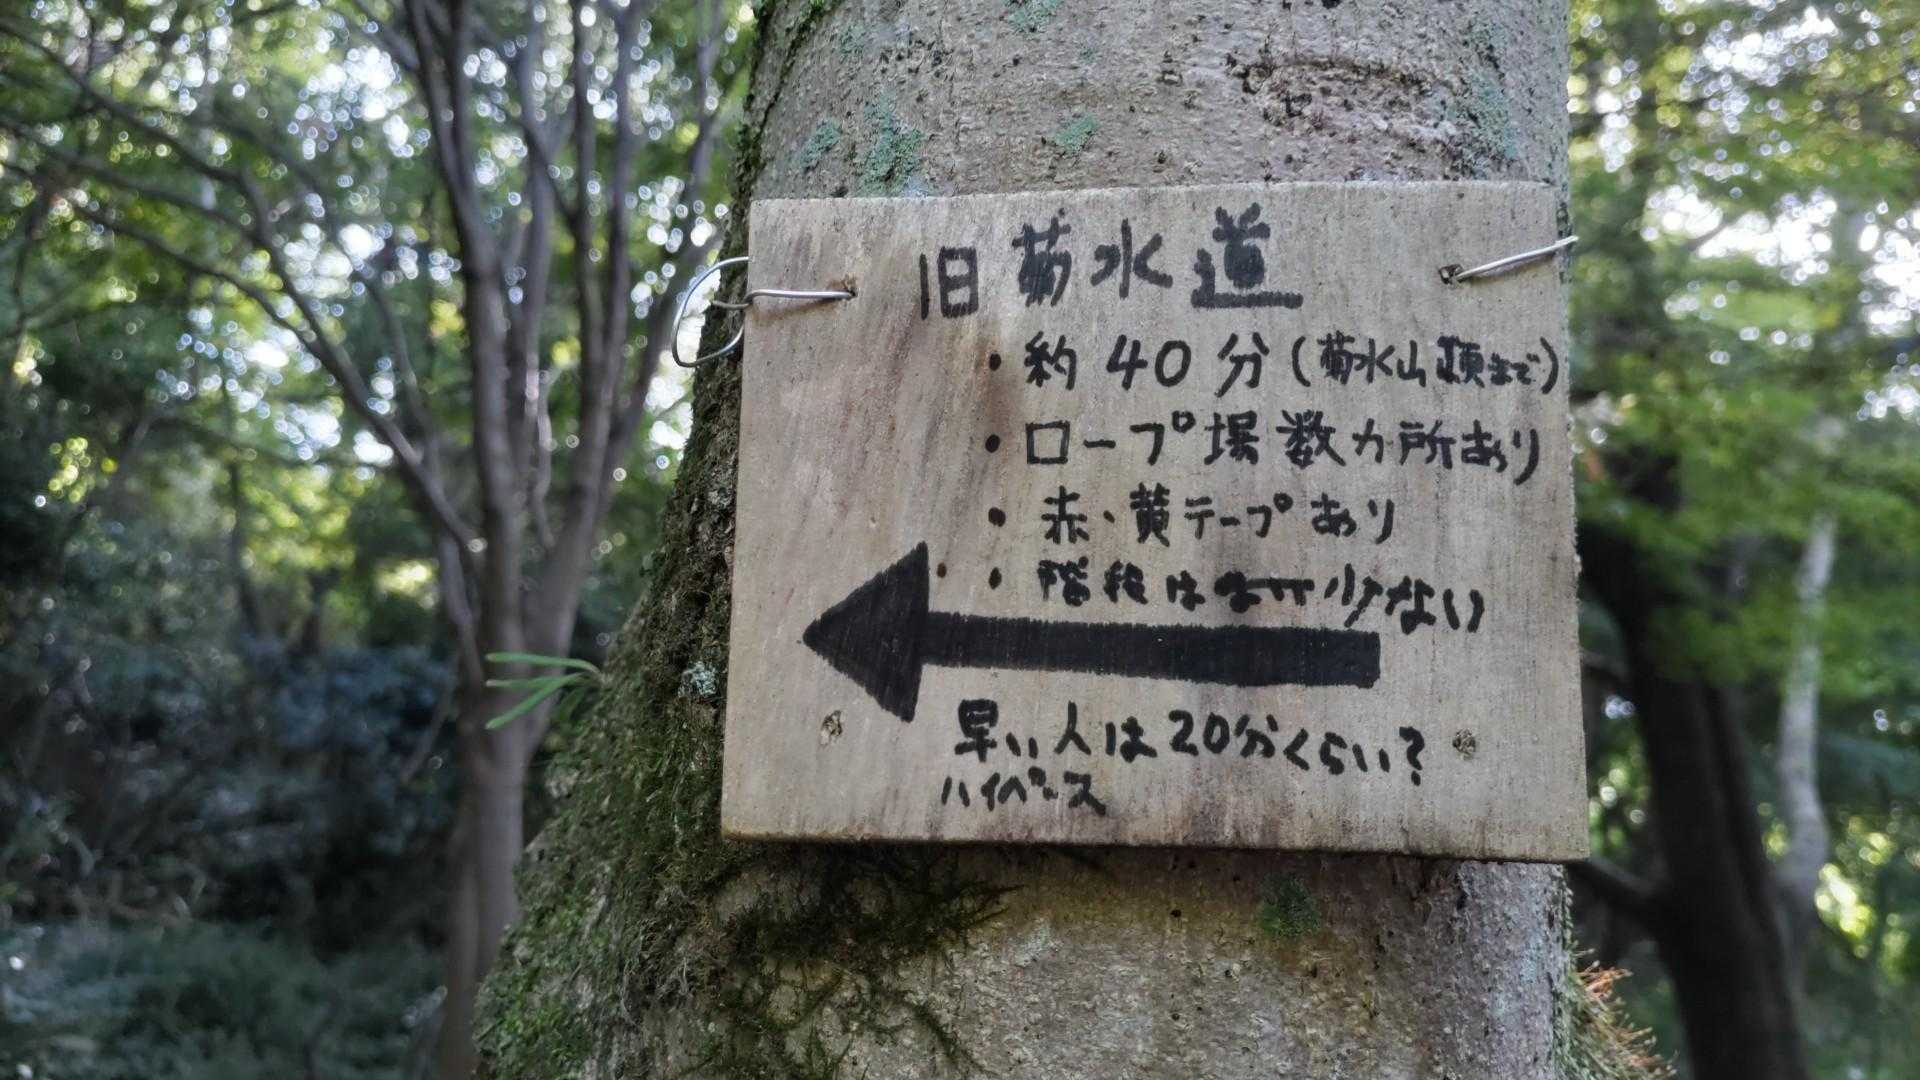 旧菊水道
・約40分(菊水山頂まで)
・ロープ場数カ所あり
・赤・黄テープあり
・階段は 少ない
早い人は20分くらい?
ハイペース